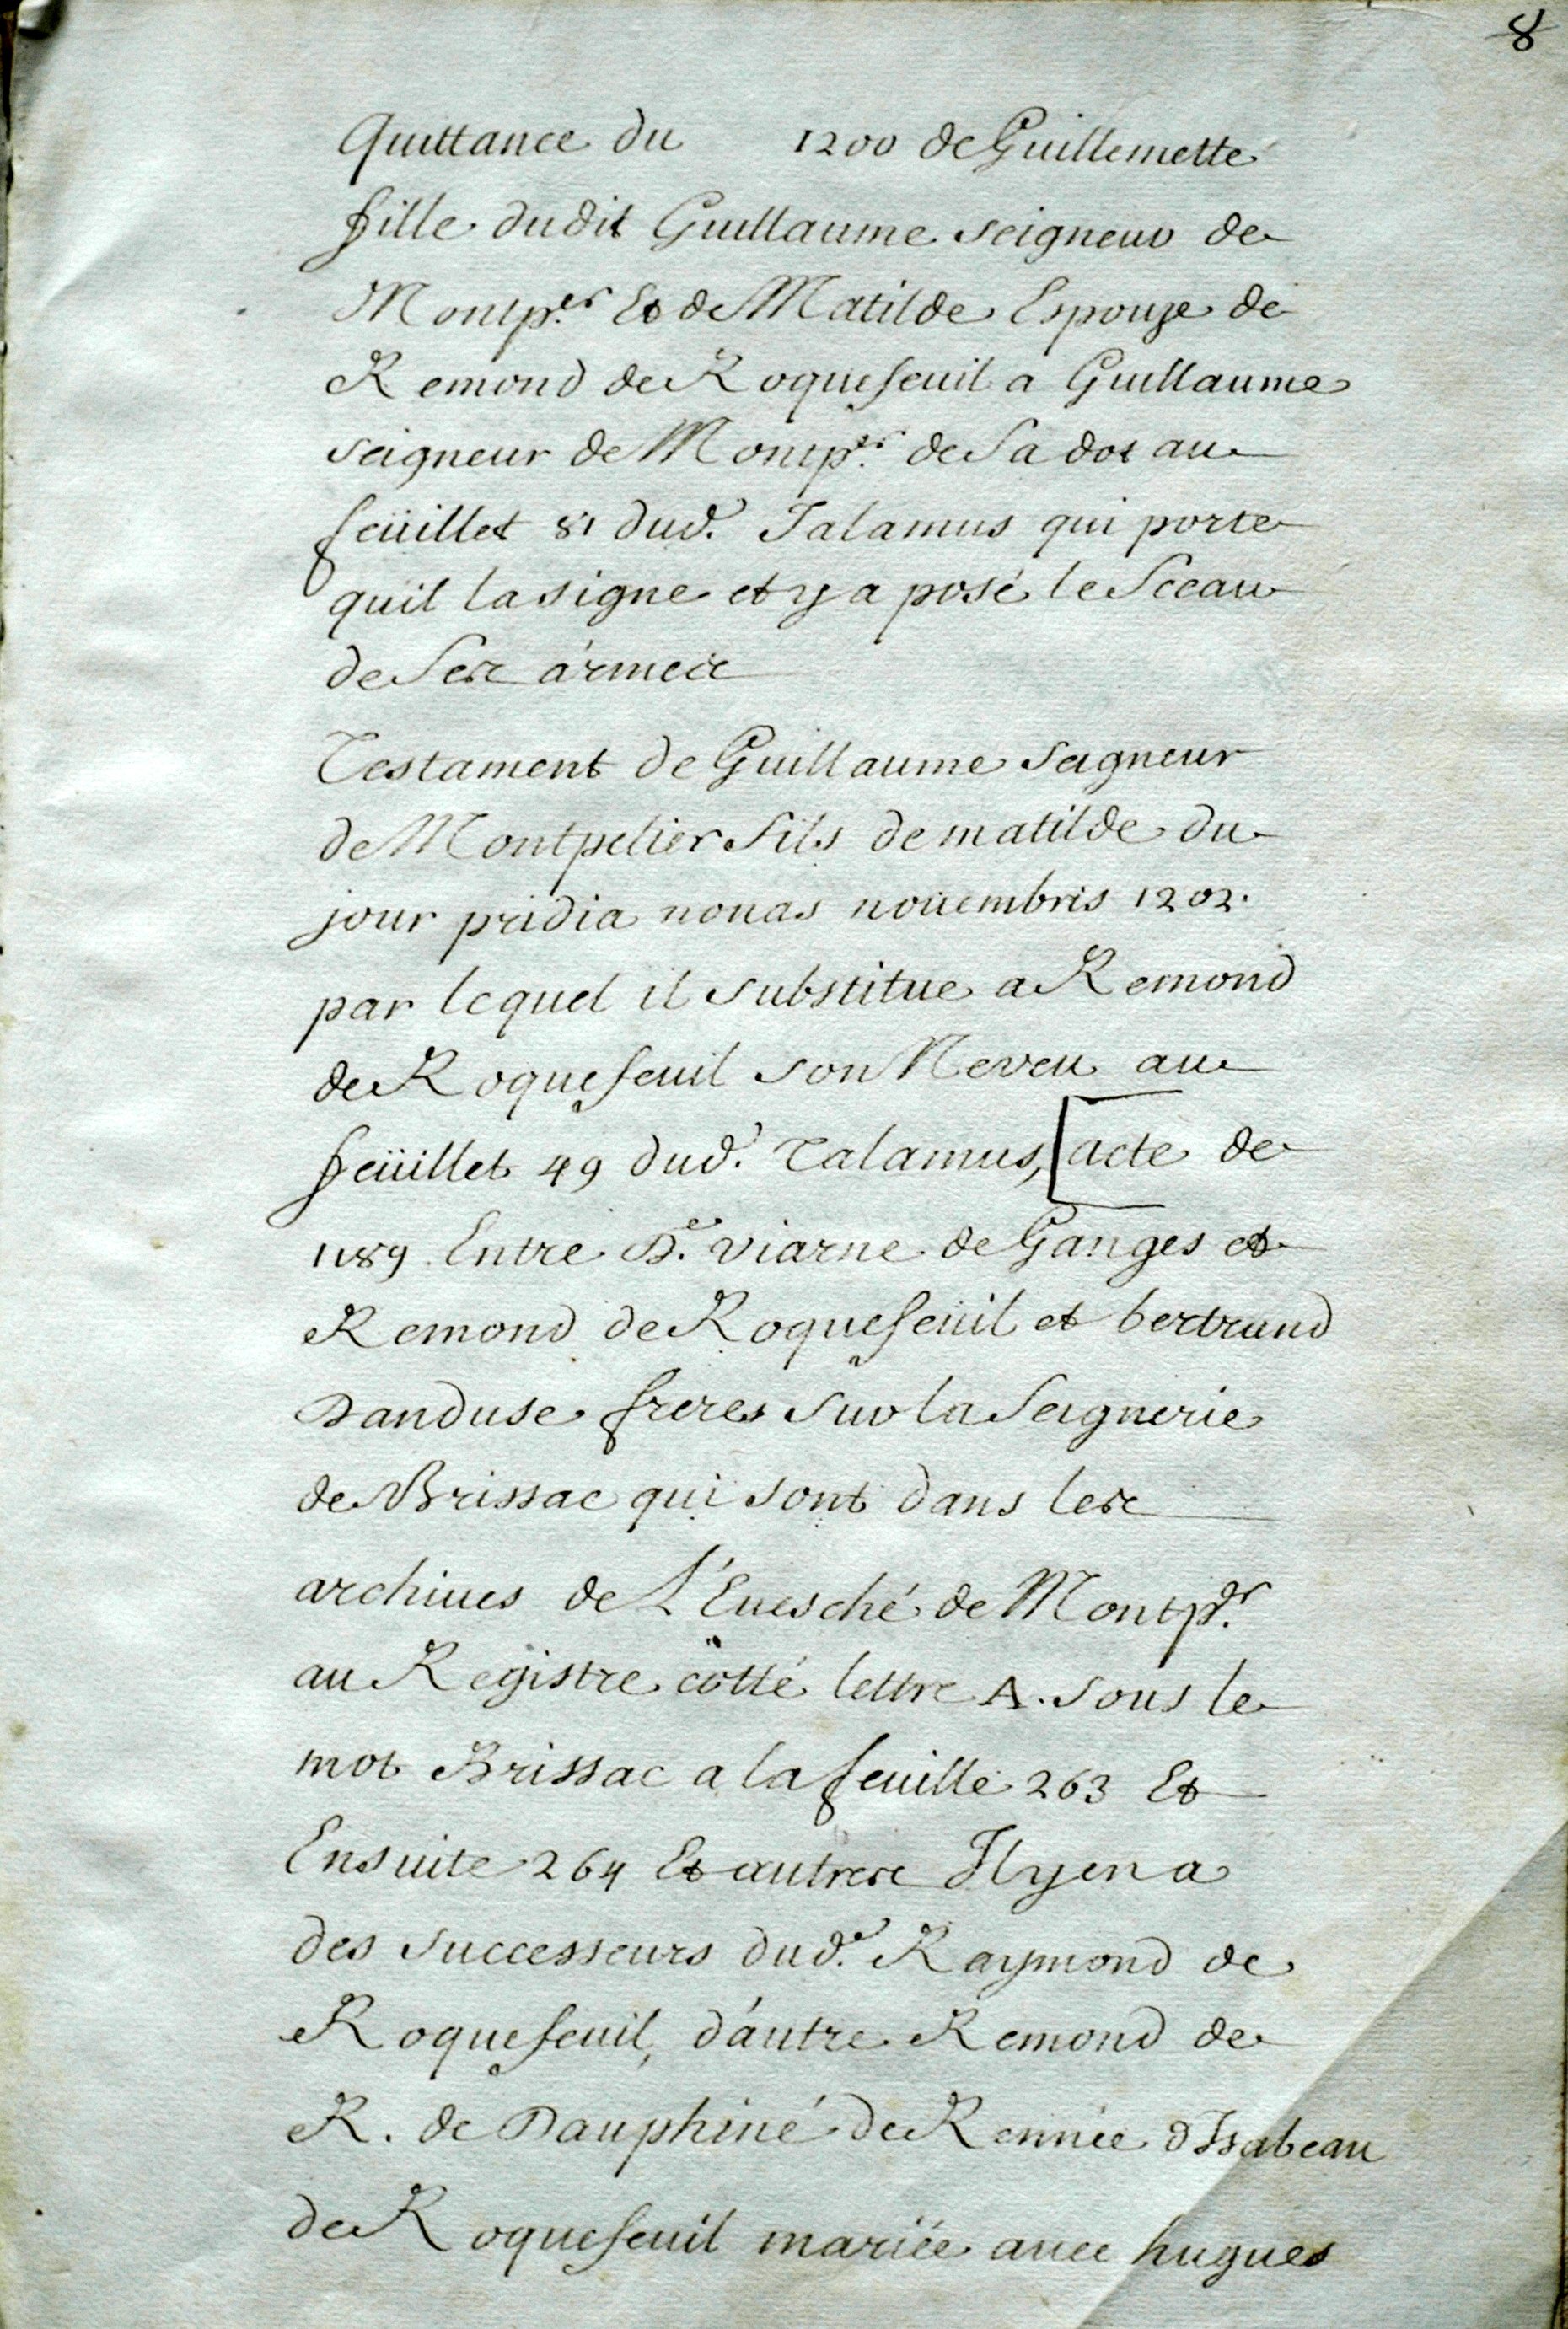 8
Quittance du 1200 de Guillemette
fille dudit Guillaume seigneur de
Montp.er Et de Matilde Espouze de
Remond de Roquefeuil a Guillaume
seigneur de Montp.er de sa dot au
feüillet 81 dud. Talamus qui porte
quil la signe et y a posé le Sceau
de ses ármes
Testament de Guillaume seigneur
de Montpelier fils de matilde du
jour pridia nonas nouembris 1202.
par lequel il substitue a Remond
de Roquefeuil son Neveu au
feüillet 49 dud. Talamus, [acte de
1189. Entre P.e viarne de Ganges et
Remond de Roquefeuil et bertrand
Danduse freres sur la Seignerie
de Brissac qui sont dans les
archiues de L'Euesché de Montp.er
au Registre cotté lettre A. sous le
mot Brissac a la feuille 263 Et
Ensuite 264 Et autres Il y en a
des successeurs dud. Raymond de
Roquefeuil, d'autre Remond de
R. de Dauphiné de Rennée d'Isabeau
de Roquefeuil mariée auec hugues